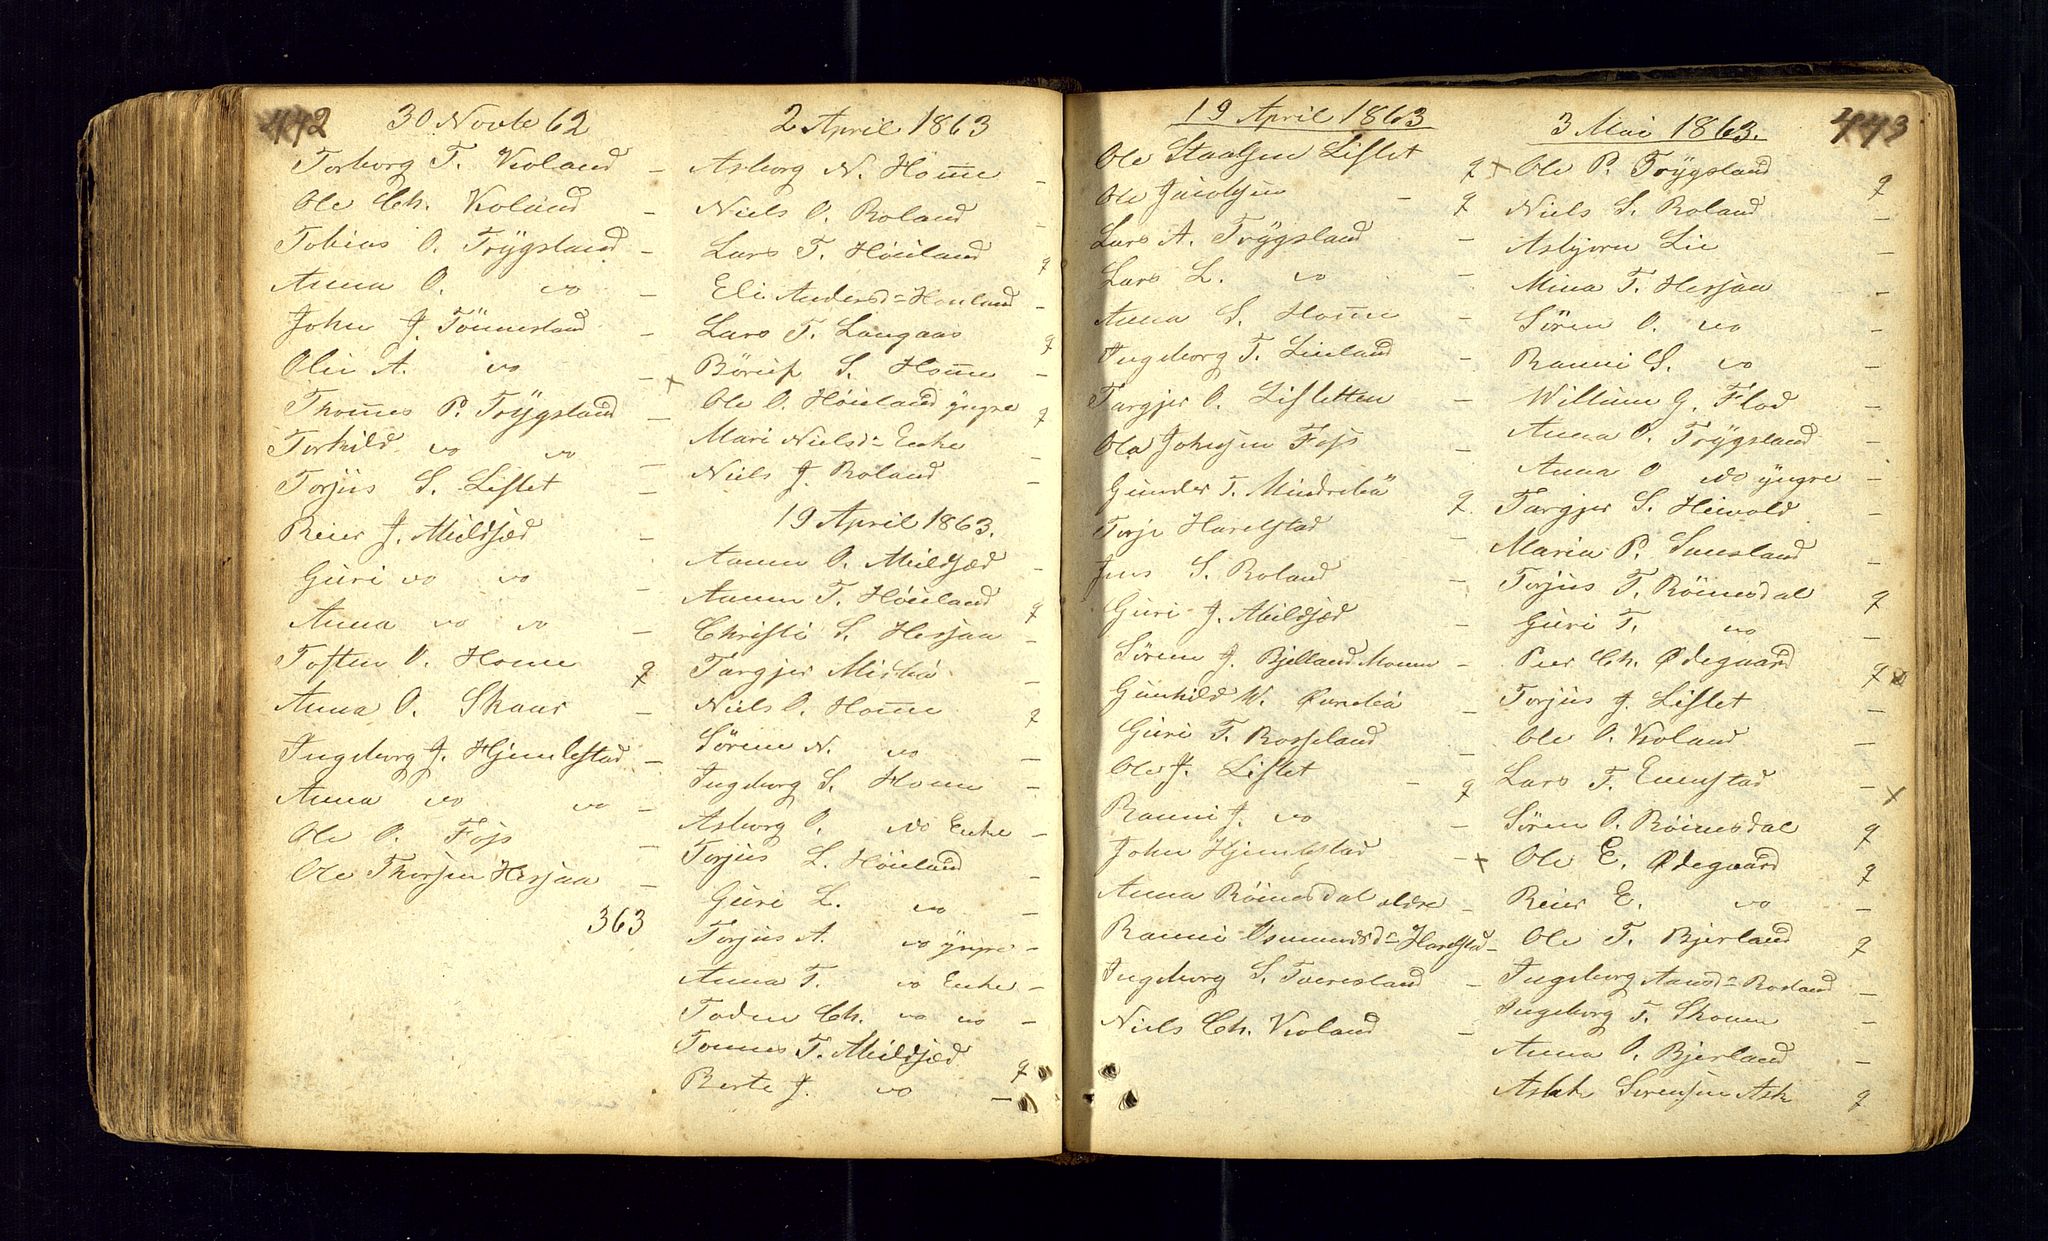 442
30 Novbr 62
Torborg T. Kvoland -
Ole Ch. Kvoland -
Tobias O. Trygsland -
Anna O. do -
John J. Tönnesland -
Olii A. do -
Thomes P. Trÿgsland -
Torkild do do -
Torjus S. Lislet -
Reier J. Mildsjæd -
Guri do do -
Anna do do -
Tosten O. Home q
Anna O. Skaar -
Ingeborg J. Hjemlestad -
Anna do do -
Ole O. Foss -
Ole Thorsen Hesjaa -
363
2 April 1863
Asborg N. Home -
Niels O. Roland -
Lars T. Höiland q
Eli Andersd= Houland -
Lars T. Langaas q
Böruf S. Home -
x Ole O. Höieland yngre q
Mari Nielsd= Enke -
Niels J. Roland -
19 April 1863.
Aanen O. Mildsjæd -
Aanen T. Höieland q
Christi S. Hesjaa -
Targjer Misbö -
Niels O. Home q
Sörine N. do -
Ingeborg S. Home -
Asborg O. do Enke -
Torjus L. Höieland -
Guri L. do -
Torjus A. do yngre -
Anna T. do Enke -
Toden Ch. do do -
Tonnes T. Mildsjæd q
Berte J. do -
19 April 1863
Ole Staalsen Lislet q
Ole Jacobsen - q
Lars A. Trÿgsland -
Lars L. do -
Anna S. Home -
Ingeborg T. Linland -
Targjer O. Lisletten -
Ole Johnsen Foss -
Gunder T. Mindrebö q.
Torje Harelstad -
Jens S. Roland -
Guri J. Mildsjæd -
Sörine J. Bjelland Moum -
Gunhild N. Øvrebö -
Guri T. Rosseland -
Ole J. Lislet - q
Ranni J. do -
John Hjemlestad -
Anna Röinesdal aldre -
Ranni Osmundsd= Harelstad -
Ingeborg S. Tveresland -
Niels Ch. Kvoland -
3 Mai 1863.
443
x Ole P. Trÿgsland q
Niels S. Roland -
Asbjorn Lie -
Mina T. Hesjaa -
Sören O. do -
Ranni S. do -
Willum G. Flod -
Anna O. Trÿgsland -
Anna O do yngre -
Targjer S. Heivold -
Maria P. Sunsland -
Torjus T. Röinesdal q
Guri T. do -
Peer Ch. Ødegaard q
Torjus J. Lislet -
Ole O. Kvoland -
Lars T. Eunestad - x
Sören O. Röinesdal q
x Ole E. Ødegaard q
Reier E. do -
Ole T. Bjerland q
Ingeborg Aansd= Rosland -
Ingeborg T. Skoum -
Anna O. Bjerland -
Aslak Sorensen Ask q